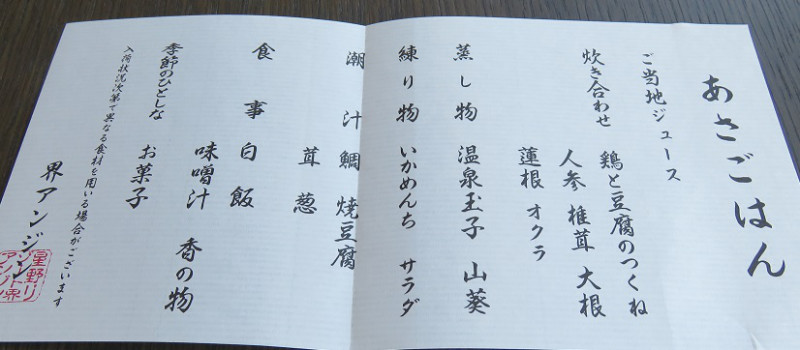 あさごはん
ご当地ジュース
炊き合わせ 鶏と豆腐のつくね
人参 椎茸 大根
蓮根 オクラ
蒸し物 温泉玉子 山葵
練り物 いかめんち サラダ
潮汁 鯛 焼豆腐
茸 葱
食事 白飯
味噌汁 香の物
季節のひとしな お菓子
入荷状況次第で異なる食材を用いる場合がございます
界アンジン
星野リ
ゾート界
アンジン